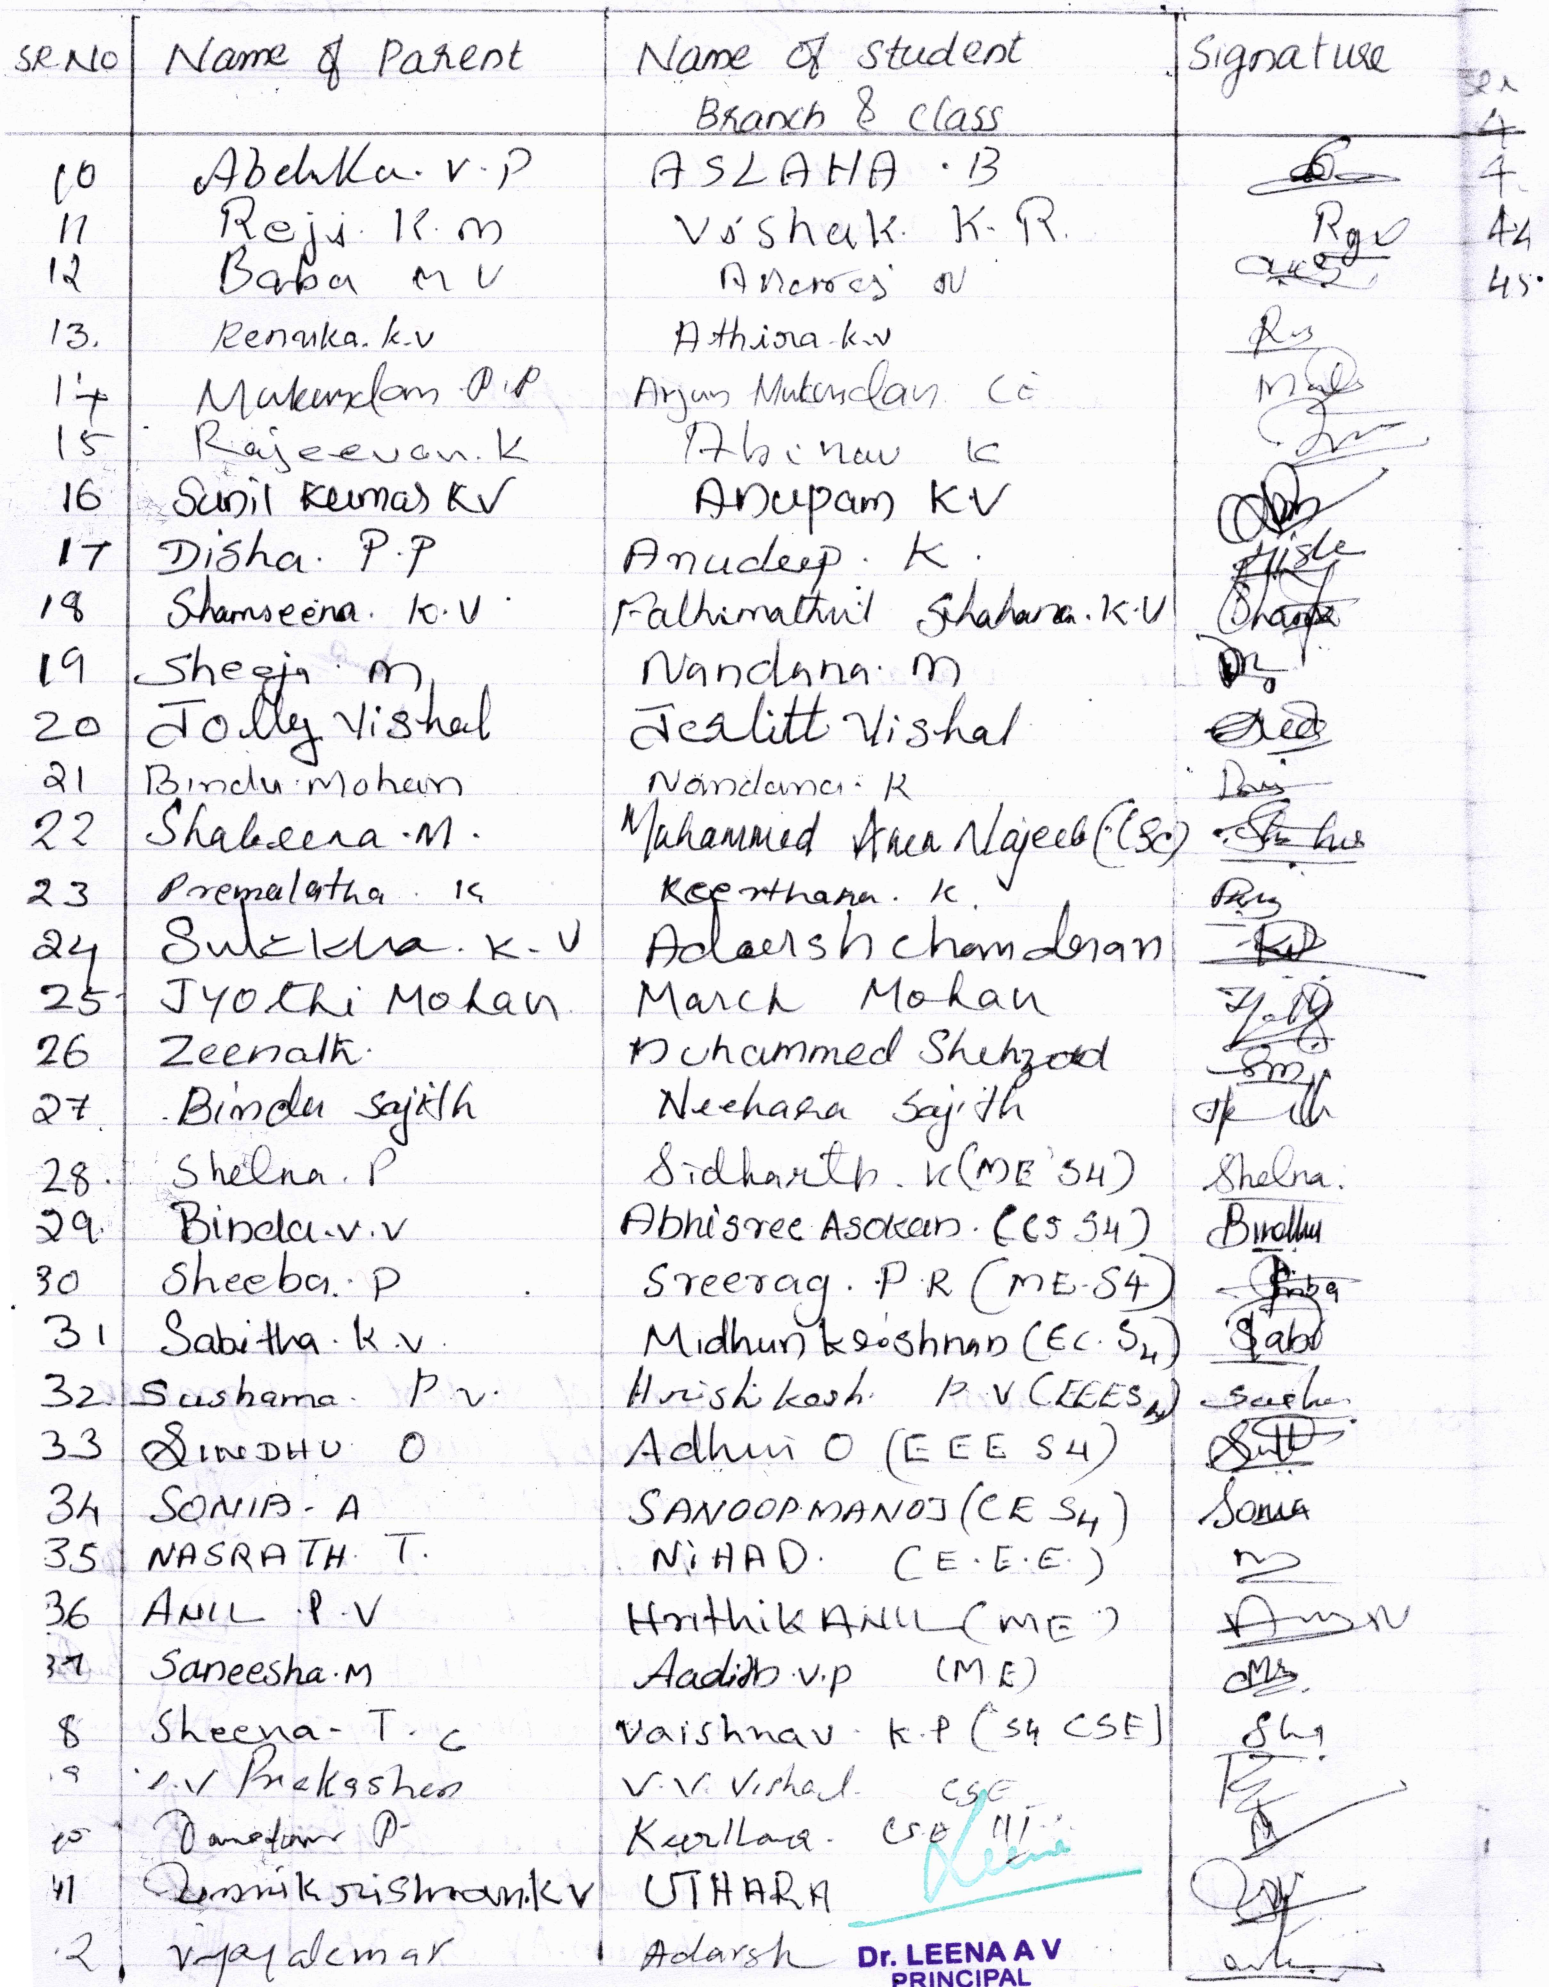 SR NO Name of Parent Name of Student Signature
Branch & class
10 V.P ASLAHA . B
11 Reji. K.m Vishak. K.R.
12 Baba M V N
13. Renuka. k.v Athira.k.v
14 Mukundan P.P Arjun Mukundan CE
15 Rajeevan. K Abinav K
16 Sunil Kumar KV Anupam KV
17 Disha. P.P Anudeep. K.
18 Shamseena. K.V Fathimathul Shahana. K.V
19 Sheeja. m Nandana. m
20 Jolly Vishal Jeslitt Vishal
21 Bindu Mohan Nandana. K
22 Shakeena .M. Muhammed Najeeb (CSC)
23 Premalatha . K Keerthana. K.
24 K.V Adarsh chandran
25 Jyothi Mohan March Mohan
26 Zeenath. Muhammed Shehzad
27 Bindu Sajith Neehara Sajith
28. Shelna. P Sidharth. K (ME S4) Shelna.
29. Binda.v.v Abhisree Asokan. (CS S4) Bindhu
30 Sheeba. P Sreerag. P.R (ME-S4)
31 Sabitha. k.v. Midhun krishnan (EC. S4) Sabi
32. Sushama. P v. Hrishikesh. P.V (EEE S4)
33 SINDHU O O (EEE S4)
34 SONIA- A SANOOP MANOJ (CE S4) Sonia
35 NASRATH. T. NIHAD. (E.E.E.)
36 ANIL .P.V Hrithik ANIL (ME)
37 Saneesha.M Aadith.v.p (ME)
8 Sheena- T. C Vaishnav. K.P (S4 CSE)
9 .V Prakashan V.V. Vishal. CSE
P
41 Unnikrishnan.K V UTHARA
2 Adarsh
Dr. LEENA A V
PRINCIPAL